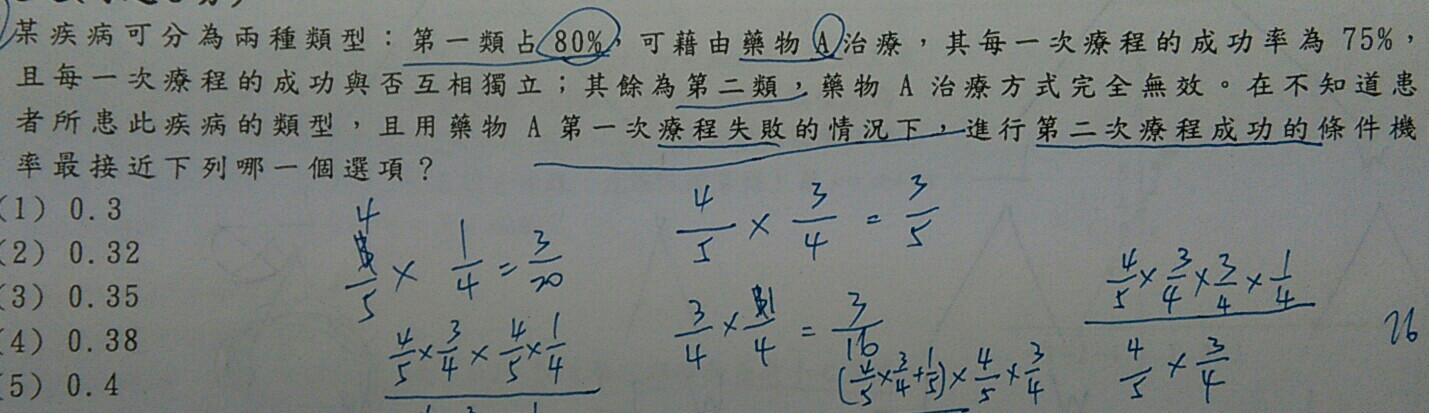 某疾病可分為兩種類型：第一類占80%，可藉由藥物A治療，其每一次療程的成功率為75%，
且每一次療程的成功與否互相獨立；其餘為第二類，藥物A治療方式完全無效。在不知道患
者所患此疾病的類型，且用藥物A第一次療程失敗的情況下，進行第二次療程成功的條件機
率最接近下列哪一個選項？
(1) 0.3
(2) 0.32
(3) 0.35
(4) 0.38
(5) 0.4
4/5 × 1/4 = 3/20
4/5 × 3/4 = 3/5
4/5×3/4×4/5×1/4
3/4 × 1/4 = 3/16
(4/5×3/4+1/5)×4/5×3/4
4/5×3/4×3/4×1/4
4/5 × 3/4
26